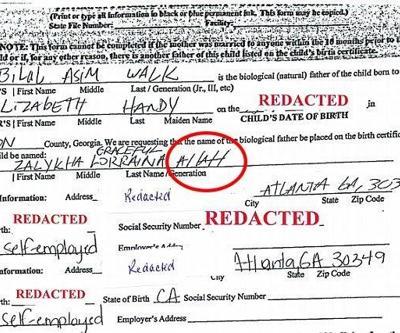 (Print or type all information in black or blue permanent ink. This form may be copied.)
State File Number: Facility:
NOTE: This form cannot be completed if the mother was married to anyone within the 10 months prior to
ld or if, for any other reason, there is another father of this child listed on the child's birth certificate.
BILAL ASIM WALK is the biological (natural) father of the child born to
First Name Middle Last / Generation (Jr., III, etc)
LIZABETH HANDY on the REDACTED in
R'S | First Name Middle Last Maiden Name CHILD'S DATE OF BIRTH
ON County, Georgia. We are requesting that the name of the biological father be placed on the birth certific
ild be named: GRACEFUL
ZALYKHA LORRAINA ALLAH
| First Name Middle Last Name / Generation
Information: Address Redacted ATLANTA GA, 303
City State Zip Code
REDACTED Social Security Number REDACTED
self-employed Employer's Addr
Information: Address Redacted Atlanta, GA 30349
City State Zip Code
REDACTED State of Birth CA Social Security Number REDACTED
self-employed Employer's Address